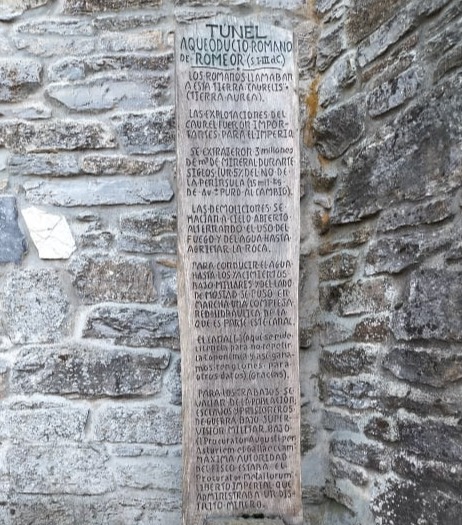 TUNEL
AQUEODUCTO ROMANO
DE ROMEOR (s I-III dC)
LOS ROMANOS LLAMABAN
A ESTA TIERRA "AURELIS"
(TIERRA AUREA).
LAS EXPLOTACIONES DEL
CAUREL FUERON IMPOR
TANTES PARA EL IMPERIO
SE EXTRAJERON 3 millones
DE m³ DE MINERAL DURANTE
SIGLOS DEL NO DE
LA PENINSULA
DE Au PURO AL CAMBIO).
LAS DEMOLICIONES SE
HACIAN A CIELO ABIERTO
ALTERNANDO EL USO DEL
FUEGO Y DEL AGUA HASTA
AGRIETAR LA ROCA.
PARA CONDUCIR EL AGUA
HASTA LOS YACIMIENTOS
BAJO MILLARES Y DEL LADO
DE MOSTAD SE PUSO EN
MARCHA UNA COMPLEJA
RED HIDRAULICA DE LA
QUE ES PARTE ESTE CANAL
EL CANAL (Aqui se pide
para no repetir
la
mos renglones para
otros datos) (Gracias).
PARA LOS TRABAJOS SE
VALIAN DE LA POBLACION,
ESCLAVOS Y PRISIONEROS
DE GUERRA BAJO SUPER-
VISION MILITAR BAJO
el Procurator Augusti per
Asturiam et Gallaeciam
MAXIMA AUTORIDAD
DEL FISCO ESTABA EL
Procurator Metallorum
LIBERTO IMPERIAL QUE
ADMINISTRABA UN DIS-
TRITO MINERO.